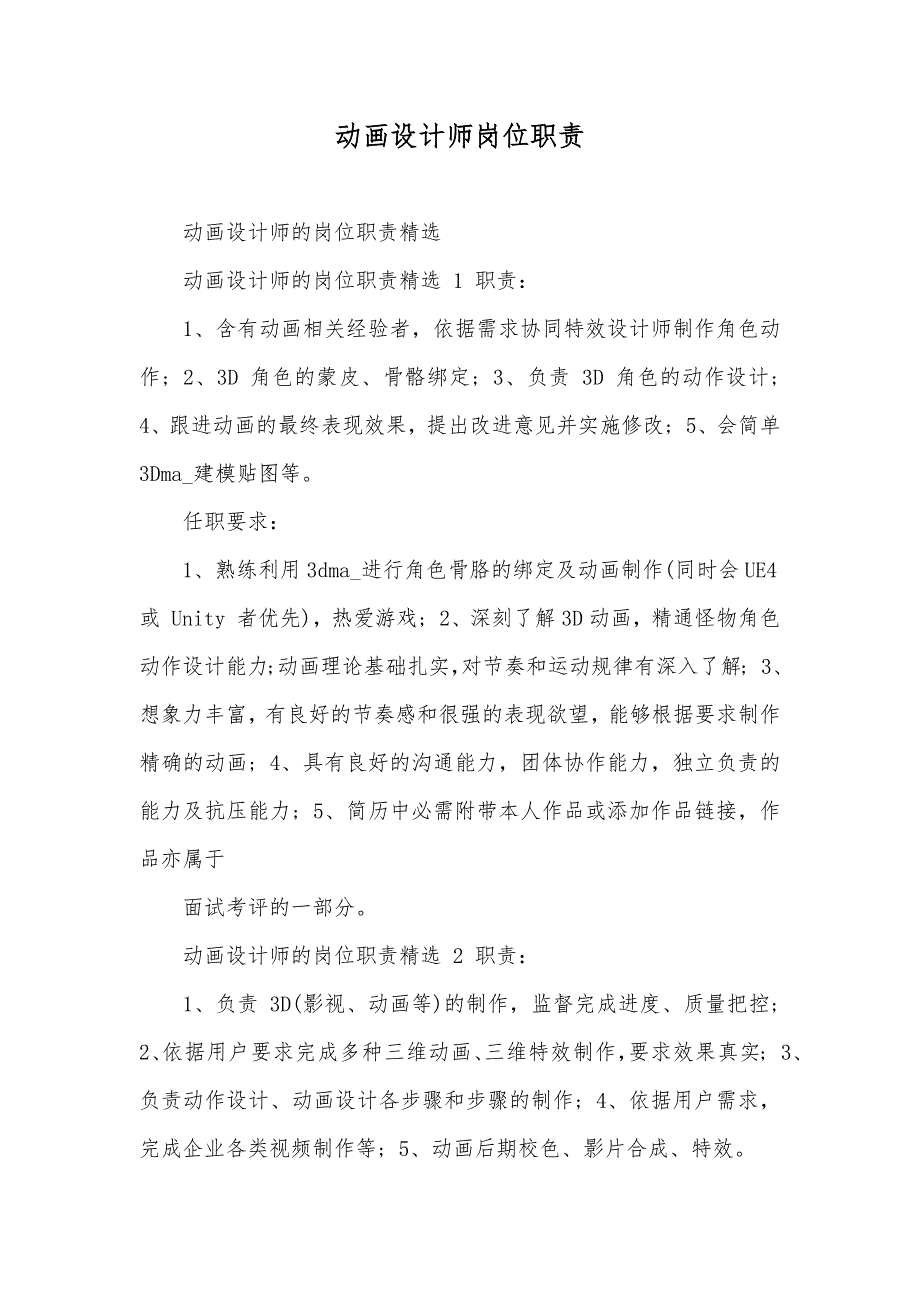 动画设计师岗位职责
动画设计师的岗位职责精选
动画设计师的岗位职责精选 1 职责：
1、含有动画相关经验者，依据需求协同特效设计师制作角色动
作；2、3D 角色的蒙皮、骨骼绑定；3、负责 3D 角色的动作设计；
4、跟进动画的最终表现效果，提出改进意见并实施修改；5、会简单
3Dma_建模贴图等。
任职要求：
1、熟练利用3dma_进行角色骨胳的绑定及动画制作(同时会UE4
或 Unity 者优先)，热爱游戏；2、深刻了解3D动画，精通怪物角色
动作设计能力;动画理论基础扎实,对节奏和运动规律有深入了解；3、
想象力丰富，有良好的节奏感和很强的表现欲望，能够根据要求制作
精确的动画；4、具有良好的沟通能力，团体协作能力，独立负责的
能力及抗压能力；5、简历中必需附带本人作品或添加作品链接，作
品亦属于
面试考评的一部分。
动画设计师的岗位职责精选 2 职责：
1、负责 3D(影视、动画等)的制作，监督完成进度、质量把控；
2、依据用户要求完成多种三维动画、三维特效制作,要求效果真实；3、
负责动作设计、动画设计各步骤和步骤的制作；4、依据用户需求，
完成企业各类视频制作等；5、动画后期校色、影片合成、特效。